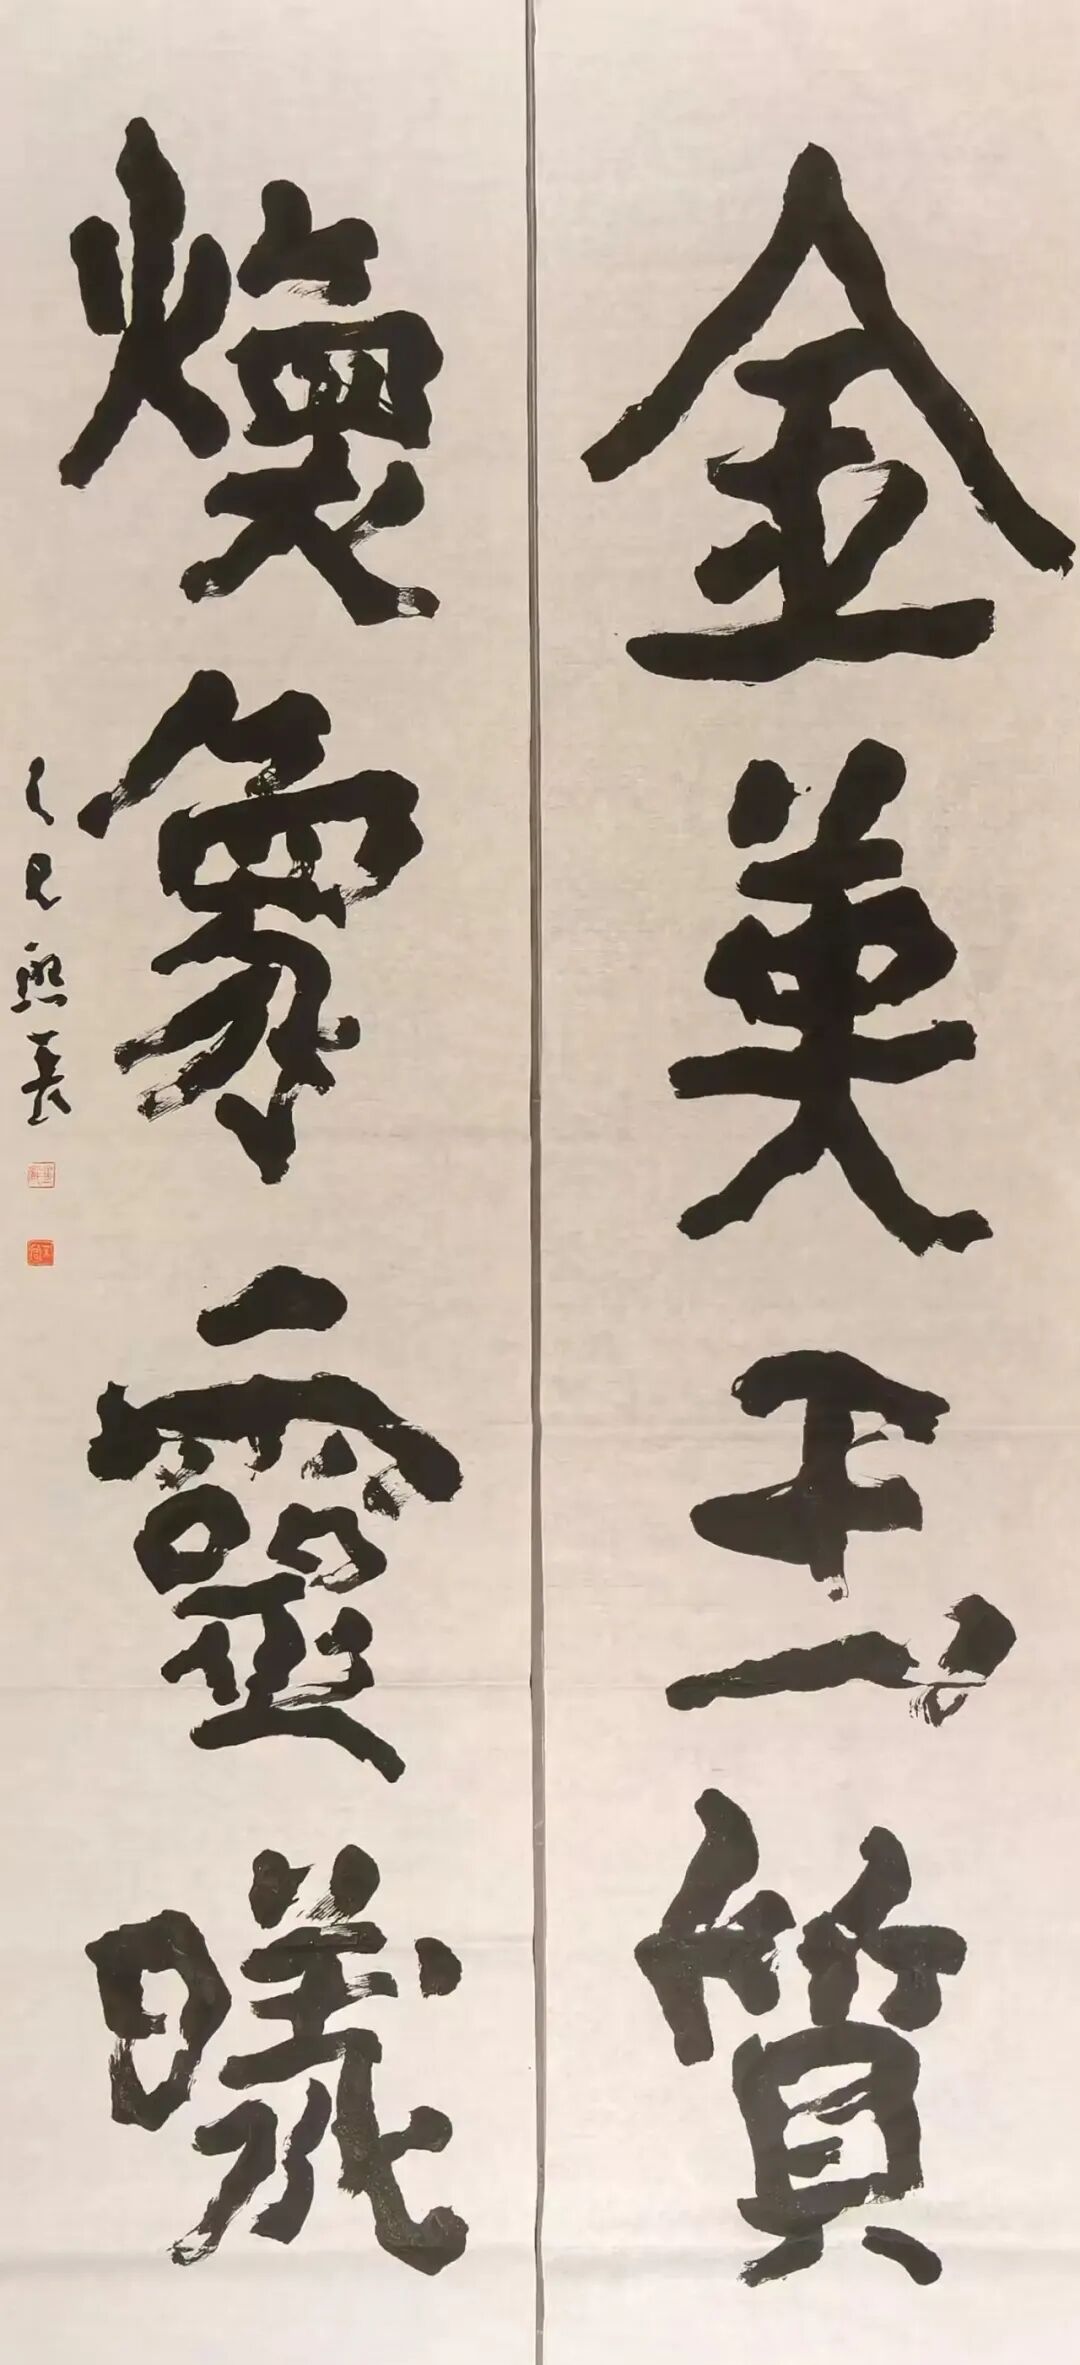 金英玉質
煥象靈曦
乙巳熙長